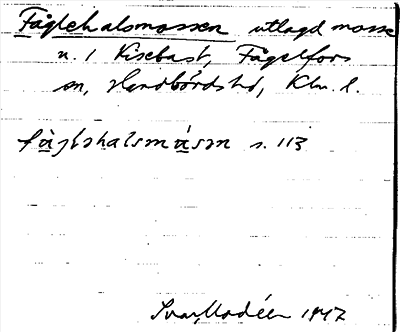 Fåglehalsmossen utlagd mosse
u. 1 Kisebast, Fågelfors
sn, Handbörds hd, Klm. l.
fåglehalsmåsen s. 113
1947